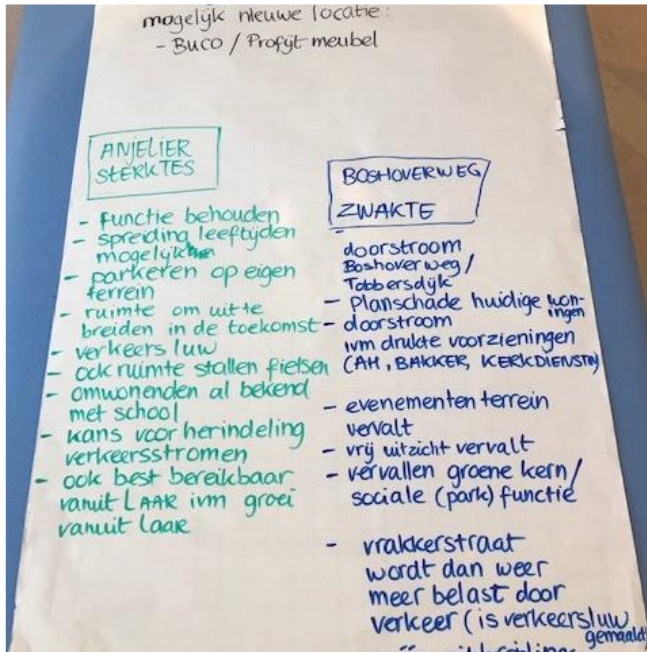 mogelijk nieuwe locatie:
- Buco / Profijt meubel
ANJELIER
STERKTES
- functie behouden
- spreiding leeftijden
mogelijk
- parkeren op eigen
terrein
- ruimte om uit te
breiden in de toekomst
- verkeers luw
- ook ruimte stallen fietsen
- omwonenden al bekend
met school
- kans voor herindeling
verkeersstromen
- ook best bereikbaar
vanuit LAAR ivm groei
vanuit laar
BOSHOVERWEG
ZWAKTE
-
doorstroom
Boshoverweg /
Tobbersdijk
- Planschade huidige won-
ingen
- doorstroom
ivm drukte voorzieningen
(AH, BAKKER, KERKDIENSTEN)
- evenementen terrein
vervalt
- vrij uitzicht vervalt
- vervallen groene kern /
sociale (park) functie
- vrakkerstraat
wordt dan weer
meer belast door
verkeer (is verkeersluw
gemaakt)